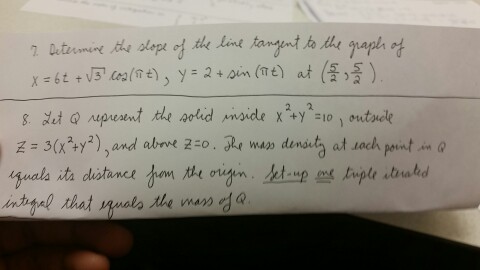 7. Determine the slope of the line tangent to the graph of
x = 6t + √3 cos(πt), y = 2 + sin(πt) at (5/2, 5/2).
8. Let Q represent the solid inside x²+y²=10, outside
z = 3(x²+y²), and above z=0. The mass density at each point in Q
equals its distance from the origin. Set-up one triple iterated
integral that equals the mass of Q.